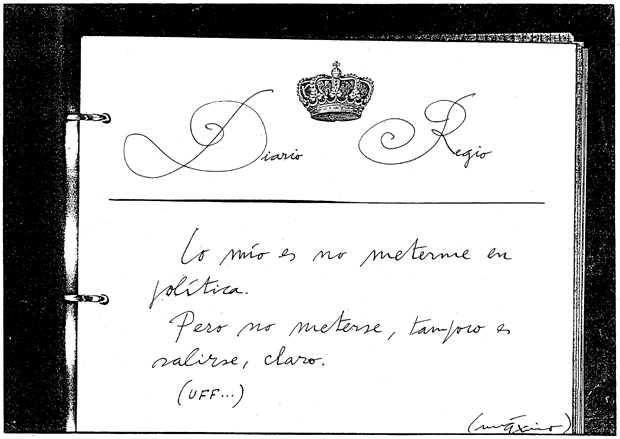 Diario Regio
Lo mío es no meterme en
política.
Pero no meterse, tampoco es
salirse, claro.
(UFF...)
(máximo)